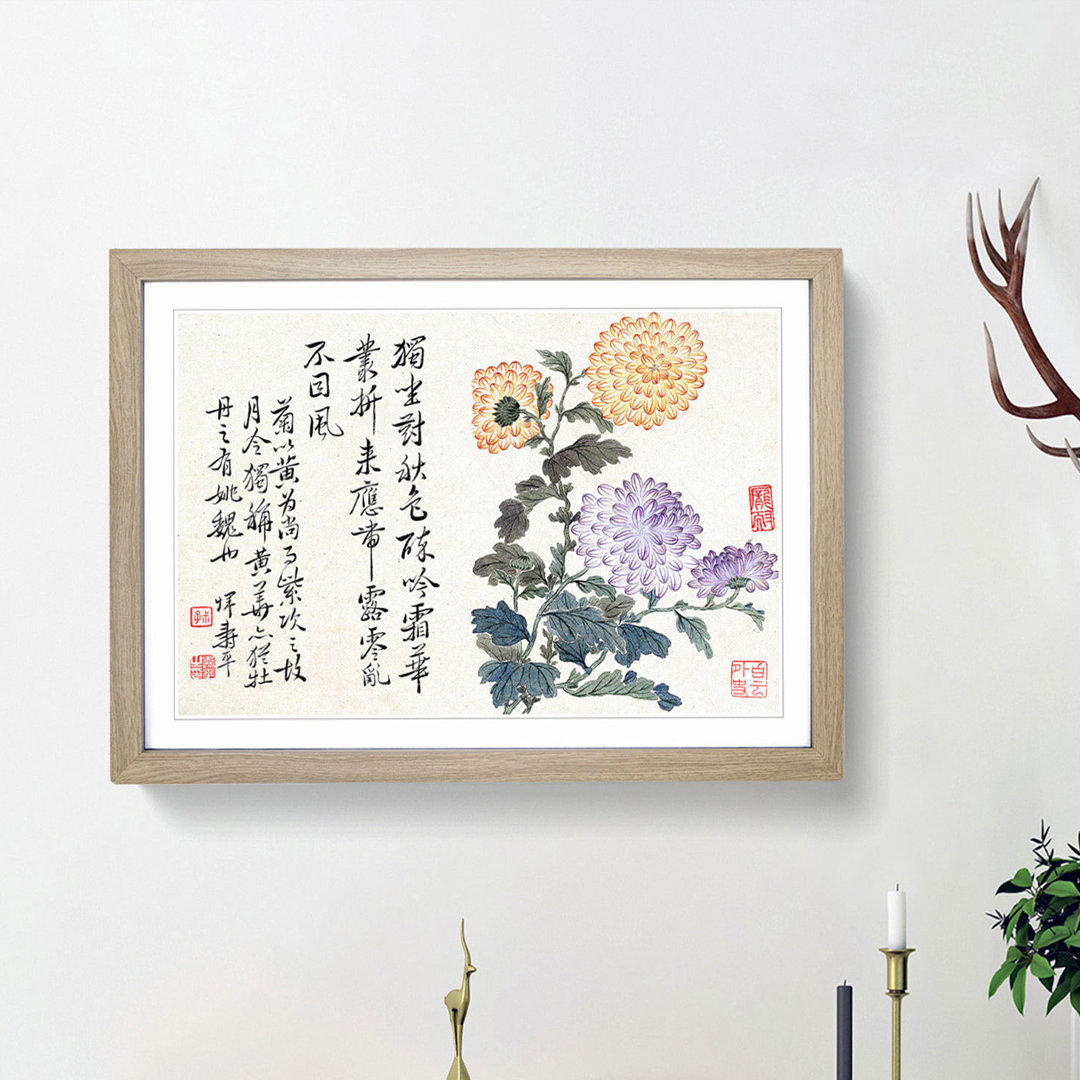 獨坐對秋色吟霜華
叢折来應帶露零亂
不因風
菊以黄为尚而紫次之故
月令獨稱黄華亦猶牡
丹之有姚魏也 惲壽平
白云外史